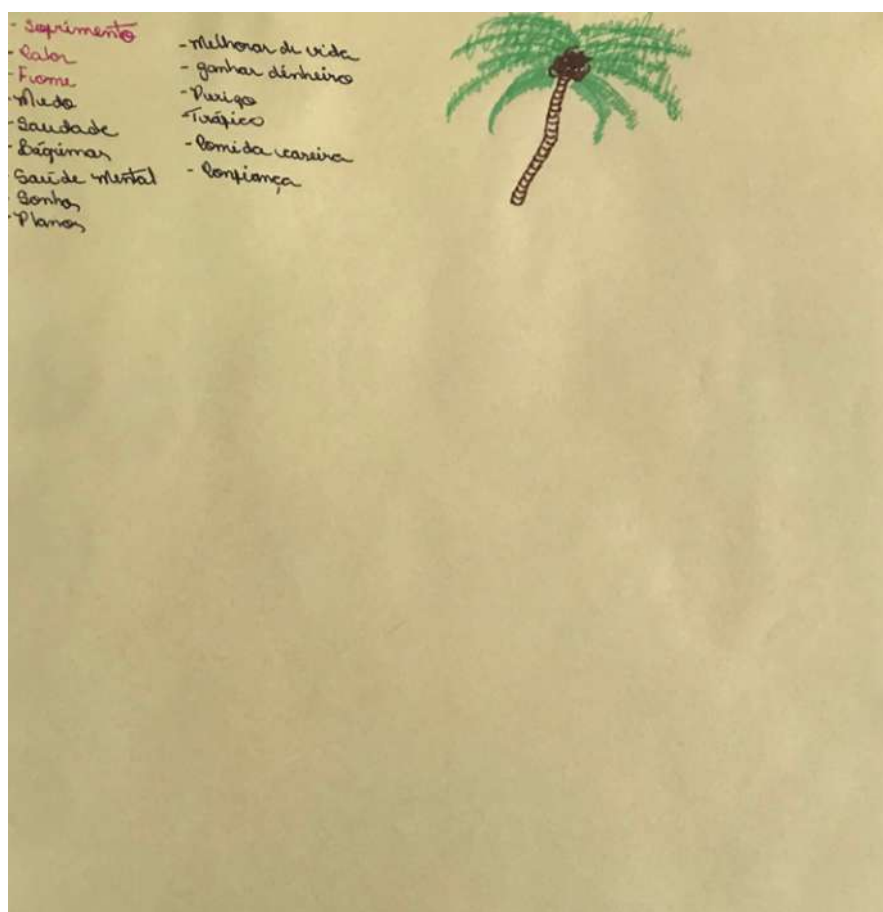 - Sofrimento
- Calor
- Fome
- Medo
- Saudade
- Lágrimas
Saúde Mental
- Sonhos
- Planos
- Melhorar de vida
- ganhar dinheiro
- Perigo
- Tráfico
- Comida caseira
- Confiança